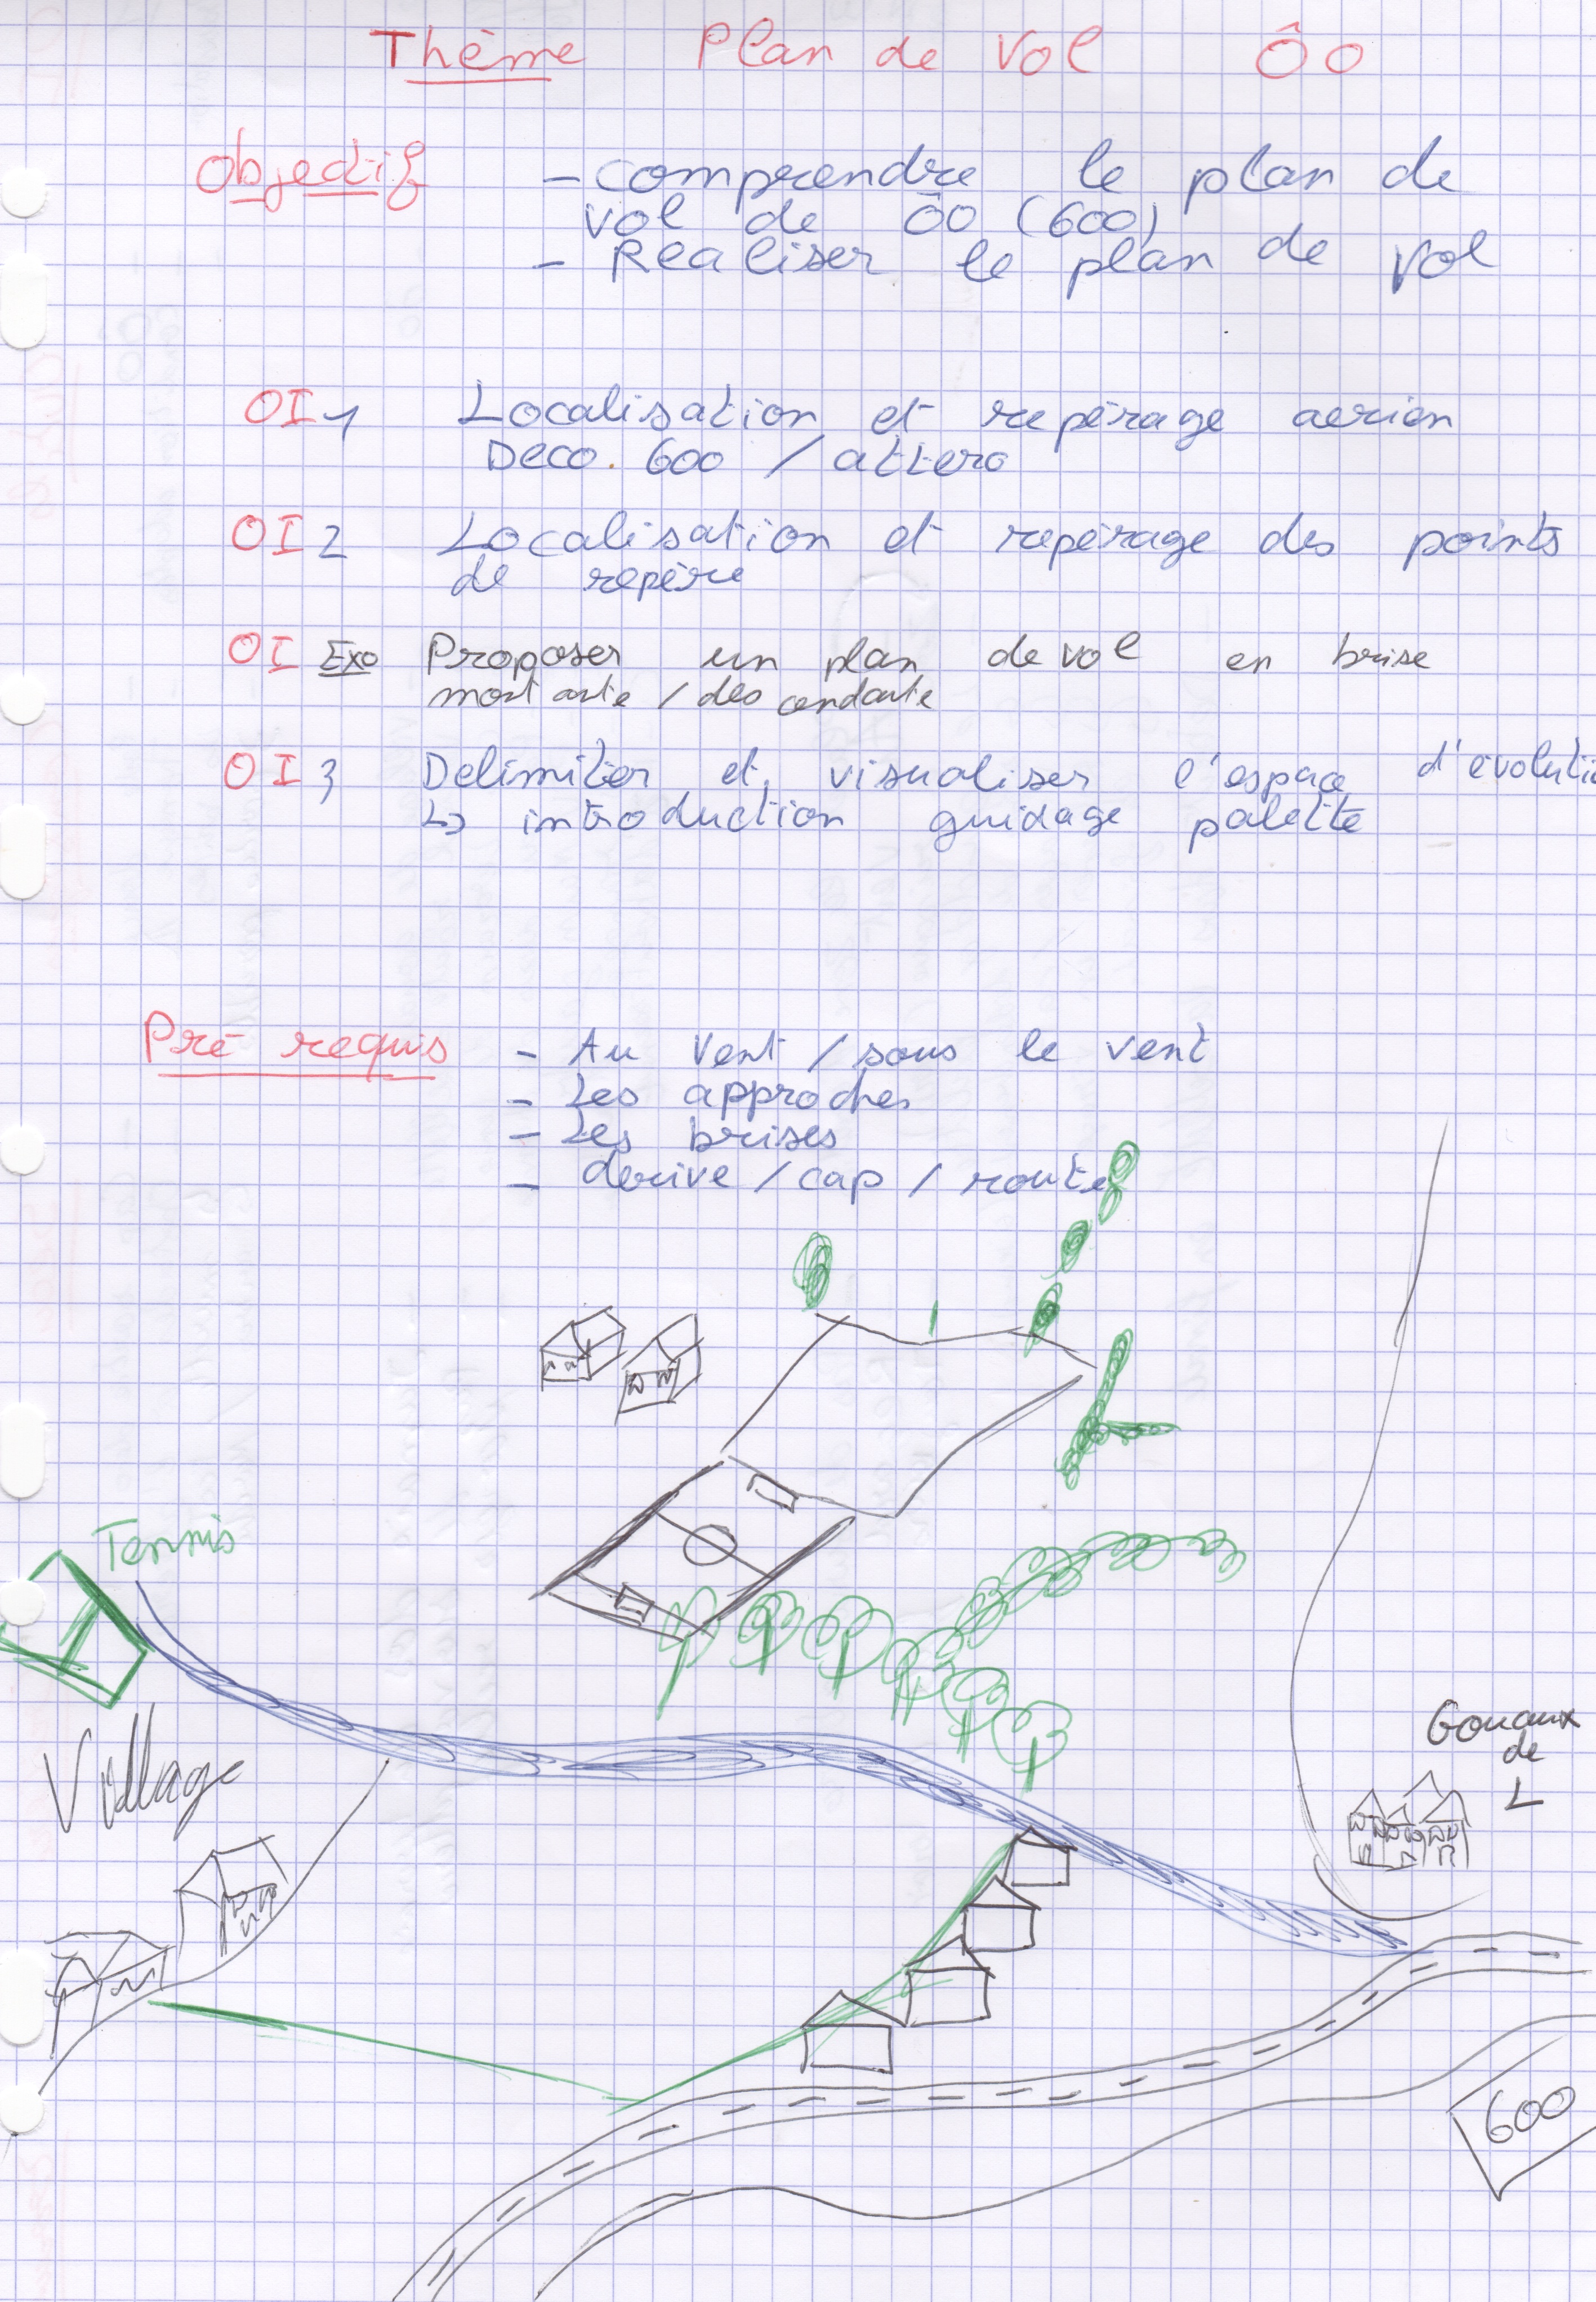 Thème Plan de Vol Ôo
Objectif - comprendre le plan de
vol de Ôo (600)
- Realiser le plan de vol
OI 1 Localisation et repérage aerien
Deco. 600 / attero
OI 2 Localisation et repérage des points
de repère
OI Exo Proposer un plan de vol en brise
montante / descendante
OI 3 Delimiter et visualiser l'espace d'evoluti
↳ introduction guidage palette
Pré requis - Au Vent / sous le vent
- Les approches
- Les brises
- derive / cap / route
Tennis
Village
Gouaux
de
L
600